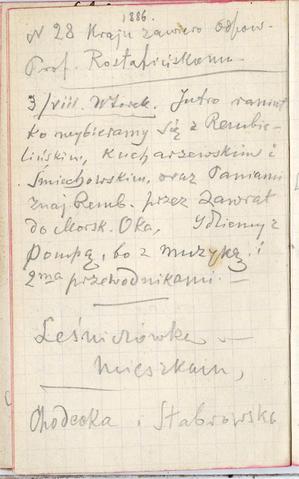 1886.
N 28 Kraju zawiera odpow.
Prof. Rostafińskiemu
3/VIII. Wtorek. Jutro raniut
ko wybieramy się z Rembie-
lińskim, Kucharzewskim i
Śmiechowskim, oraz Paniami
znaj Remb. przez Zawrat
do Morsk. Oka, Idziemy z
Pompą, bo z muzyką i
2ma przewodnikami. —
Leśniczówka —
mieszkam,
Chodecka i Stabrowska